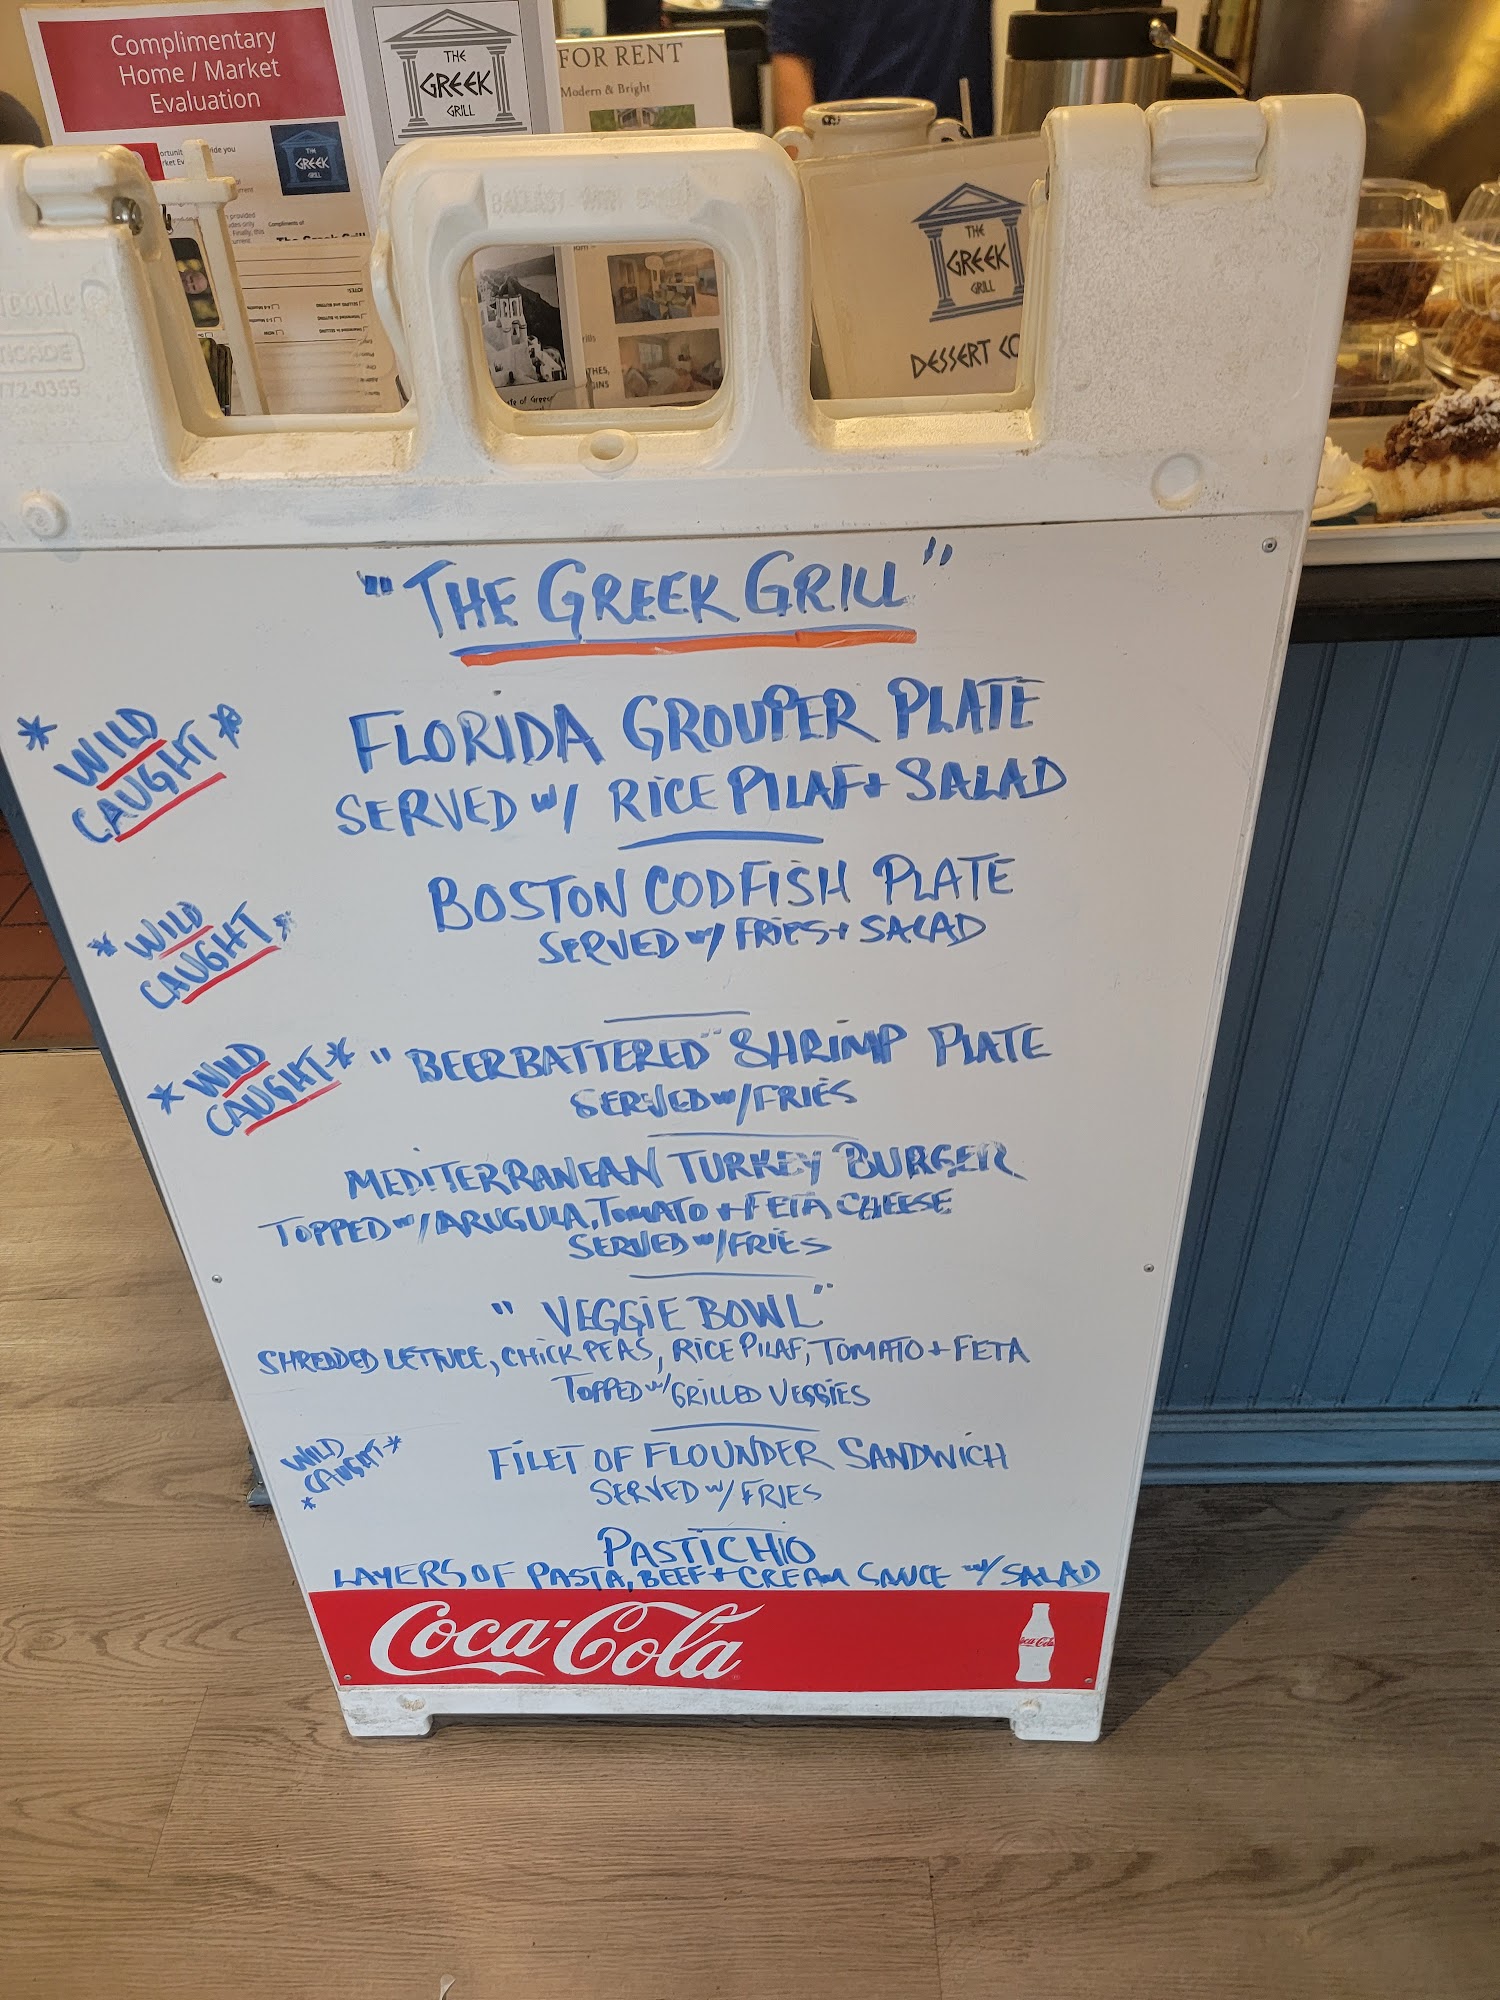 Complimentary
Home / Market
Evaluation
THE
GREEK
GRILL
FOR RENT
Modern & Bright
THE
GREEK
GRILL
provided
Compliments of
BALLAST
THE
GREEK
GRILL
DESSERT CO
772-0355
"THE GREEK GRILL"
* WILD CAUGHT *
FLORIDA GROUPER PLATE
SERVED W/ RICE PILAF + SALAD
* WILD CAUGHT *
BOSTON CODFISH PLATE
SERVED W/ FRIES + SALAD
* WILD CAUGHT *
"BEERBATTERED" SHRIMP PLATE
SERVED W/ FRIES
MEDITERRANEAN TURKEY BURGER
TOPPED W/ ARUGULA, TOMATO + FETA CHEESE
SERVED W/ FRIES
"VEGGIE BOWL"
SHREDDED LETTUCE, CHICK PEAS, RICE PILAF, TOMATO + FETA
TOPPED W/ GRILLED VEGGIES
WILD CAUGHT *
*
FILET OF FLOUNDER SANDWICH
SERVED W/ FRIES
PASTICHIO
LAYERS OF PASTA, BEEF + CREAM SAUCE W/ SALAD
Coca-Cola
Coca-Cola